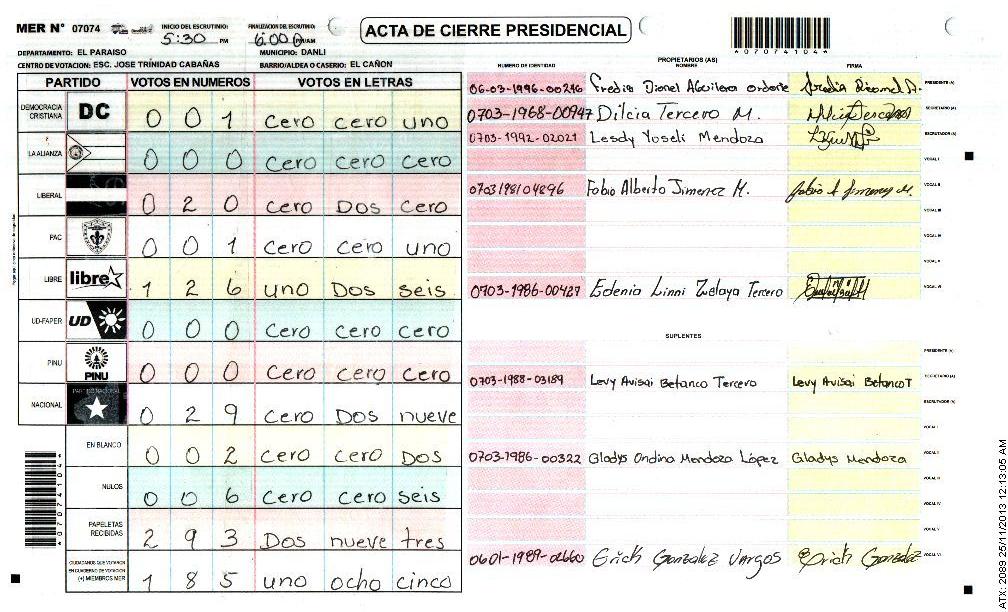 MER N° 07074 INICIO DEL ESCRUTINIO: 5:30 PM FINALIZACION DEL ESCRUTINIO: 6:00 PM/AM
ACTA DE CIERRE PRESIDENCIAL
*07074104*
DEPARTAMENTO: EL PARAISO MUNICIPIO: DANLI
CENTRO DE VOTACION: ESC. JOSE TRINIDAD CABAÑAS BARRIO/ALDEA O CASERIO: EL CAÑON
PARTIDO VOTOS EN NUMEROS VOTOS EN LETRAS
DEMOCRACIA CRISTIANA DC 0 0 1 cero cero uno
LA ALIANZA 0 0 0 cero cero cero
LIBERAL 0 2 0 cero Dos cero
PAC 0 0 1 cero cero uno
LIBRE libre 1 2 6 uno Dos seis
UD-FAPER UD 0 0 0 cero cero cero
PINU PINU 0 0 0 cero cero cero
NACIONAL 0 2 9 cero Dos nueve
EN BLANCO 0 0 2 cero cero Dos
NULOS 0 0 6 cero cero seis
PAPELETAS RECIBIDAS 2 9 3 Dos nueve tres
CIUDADANOS QUE VOTARON EN CUADERNO DE VOTACION (+) MIEMBROS MER 1 8 5 uno ocho cinco
*07074104*
PROPIETARIOS (AS)
NUMERO DE IDENTIDAD NOMBRE FIRMA
06-03-1996-00246 Fredis Dionel Aguilera PRESIDENTE (A)
0703-1968-00947 Dilcia Tercero M. SECRETARIO (A)
0703-1992-02021 Lesdy Yoseli Mendoza ESCRUTADOR (A)
VOCAL I
0703198104896 Fobio Alberto Jimenez M. VOCAL II
VOCAL III
VOCAL IV
VOCAL V
0703-1986-00427 Edenia Linni Zelaya Tercero VOCAL VI
SUPLENTES
PRESIDENTE (A)
0703-1988-03189 Levy Avisai Betanco Tercero Levy Avisai Betanco T SECRETARIO (A)
ESCRUTADOR (A)
VOCAL I
0703-1986-00322 Gladys Ondina Mendoza López Gladys Mendoza VOCAL II
VOCAL III
VOCAL IV
VOCAL V
0601-1989-02660 Erick Gonzalez Vargas Erick Gonzalez VOCAL VI
ATX: 2089 25/11/2013 12:13:05 AM